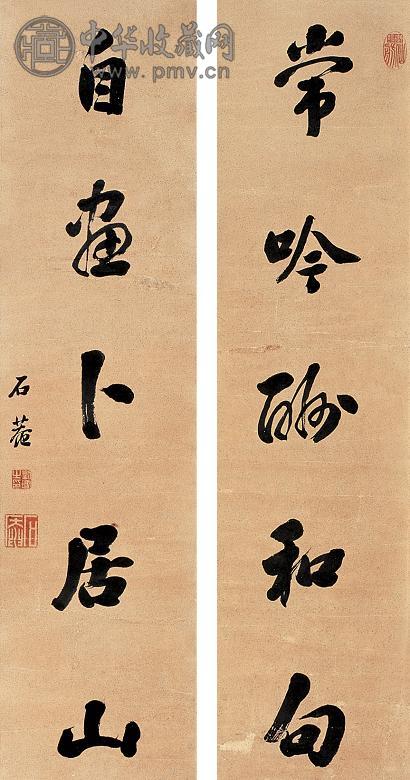 常吟酬和句
自画卜居山
石菴
中华收藏网
www.pmv.cn